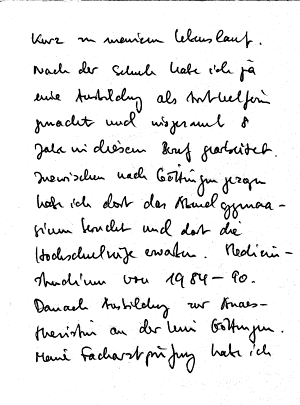 Kurz zu meinem Lebenslauf.
Nach der Schule habe ich ja
eine Ausbildung als Arzthelferin
gemacht und insgesamt 8
Jahre in diesem Beruf gearbeitet.
Inzwischen nach Göttingen gezogen
habe ich dort das Abendgymna-
sium besucht und dort die
Hochschulreife erworben. Medizin-
studium von 1984-90.
Danach Ausbildung zur Anäs-
thesistin an der Uni Göttingen.
Meine Facharztprüfung habe ich